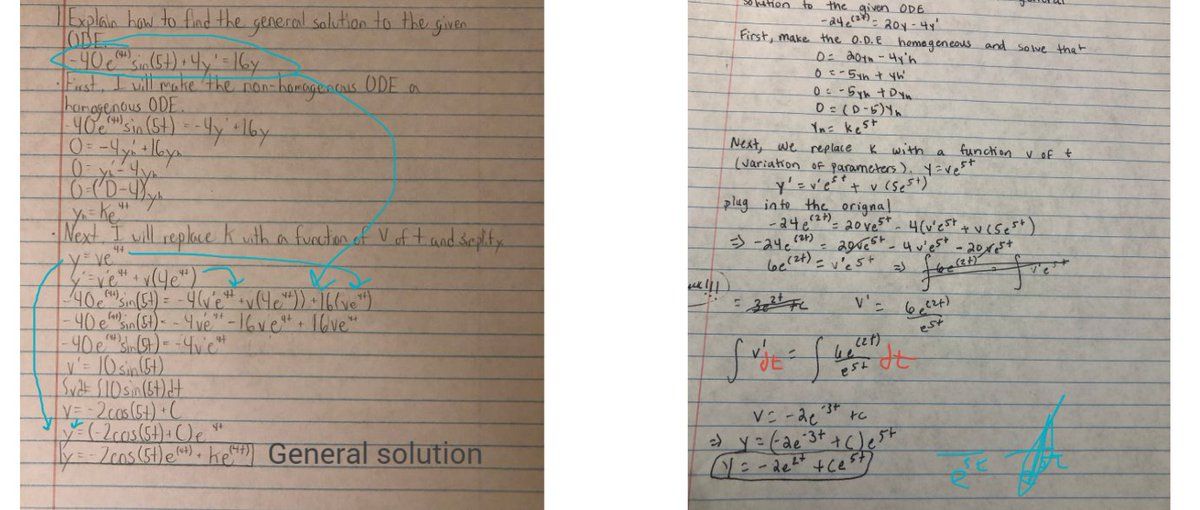 1. Explain how to find the general solution to the given
ODE.
-40e^(4t) sin(5t) + 4y' = 16y
· First, I will make the non-homogenous ODE a
homogenous ODE.
-40e^(4t) sin(5t) = -4y' + 16y
0 = -4yh' + 16yh
0 = yh' - 4yh
0 = (D-4)yh
yh = Ke^4t
· Next I will replace K with a function of V of t and
y = ve^4t
y' = v'e^4t + v(4e^4t)
-40e^(4t) sin(5t) = -4(v'e^4t + v(4e^4t)) + 16(ve^4t)
-40e^(4t) sin(5t) = -4v'e^4t - 16ve^4t + 16ve^4t
-40e^(4t) sin(5t) = -4v'e^4t
v' = 10sin(5t)
∫v'dt = ∫10sin(5t)dt
V = -2cos(5t) + C
y = (-2cos(5t) + C)e^4t
y = -2cos(5t)e^(4t) + ke^(4t) General solution
solution to the given ODE
-24e^(2t) = 20y - 4y'
First, make the O.D.E homogeneous and solve that
0 = 20yh - 4y'h
0 = -5yh + yh'
0 = -5yh + Dyh
0 = (D-5)yh
yh = ke^5t
Next, we replace k with a function v of t
(variation of parameters). y = ve^5t
y' = v'e^5t + v(5e^5t)
plug into the orignal
-24e^(2t) = 20ve^5t - 4(v'e^5t + v(5e^5t)
⇒ -24e^(2t) = 20ve^5t - 4v'e^5t - 20ve^5t
6e^(2t) = v'e^5t ⇒ ∫6e^(2t) ∫v'e^5t
= 3e^2t + c v' = 6e^(2t)
e^5t
∫v'dt = ∫6e^(2t) dt
e^5t
v = -2e^-3t + c
⇒ y = (-2e^-3t + c)e^5t
y = -2e^2t + ce^5t